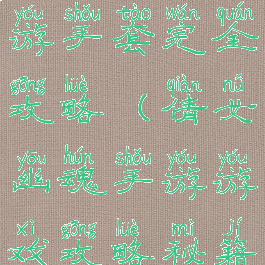 yóu shǒu tào wán quán
游手套完全
gōng lüè qiàn nǚ
攻略（倩女
yōu hún shǒu yóu yóu
幽魂手游游
xì gōng lüè mì jí
戏攻略秘籍